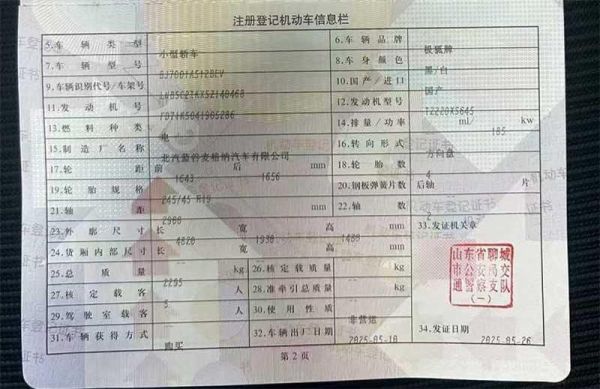 注册登记机动车信息栏
5.车辆类型 小型轿车 6.车辆品牌 极狐牌
7.车辆型号 BJ7001A512BEV 8.车身颜色 黑/白
9.车辆识别代号/车架号 10.国产/进口 国产
11.发动机号 12.发动机型号 TZ220X5645
13.燃料种类 电 14.排量/功率 ml/ 185 kw
15.制造厂名称 北汽蓝谷麦格纳汽车有限公司 16.转向形式 方向盘
17.轮距 前 1643 后 1656 mm 18.轮胎数 4
19.轮胎规格 245/45 R19 20.钢板弹簧片数 后轴 片
21.轴距 2900 mm 22.轴数 2
23.外廓尺寸 长 4820 宽 1930 高 1480 mm 33.发证机关章
24.货厢内部尺寸 长 宽 高 mm
25.总质量 2295 kg 26.核定载质量 kg
27.核定载客 5 人 28.准牵引总质量 kg
29.驾驶室载客 人 30.使用性质 非营运
31.车辆获得方式 购买 32.车辆出厂日期 2025-05-10 34.发证日期 2025-05-26
山东省聊城
市公安局交
通警察支队
(一)
第2页